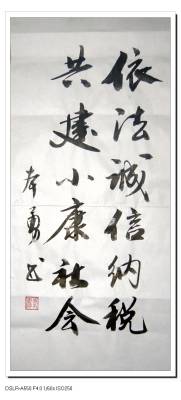 依法诚信纳税
共建小康社会
奉勇书
DSLR-A550 F4.0 1/60s ISO250